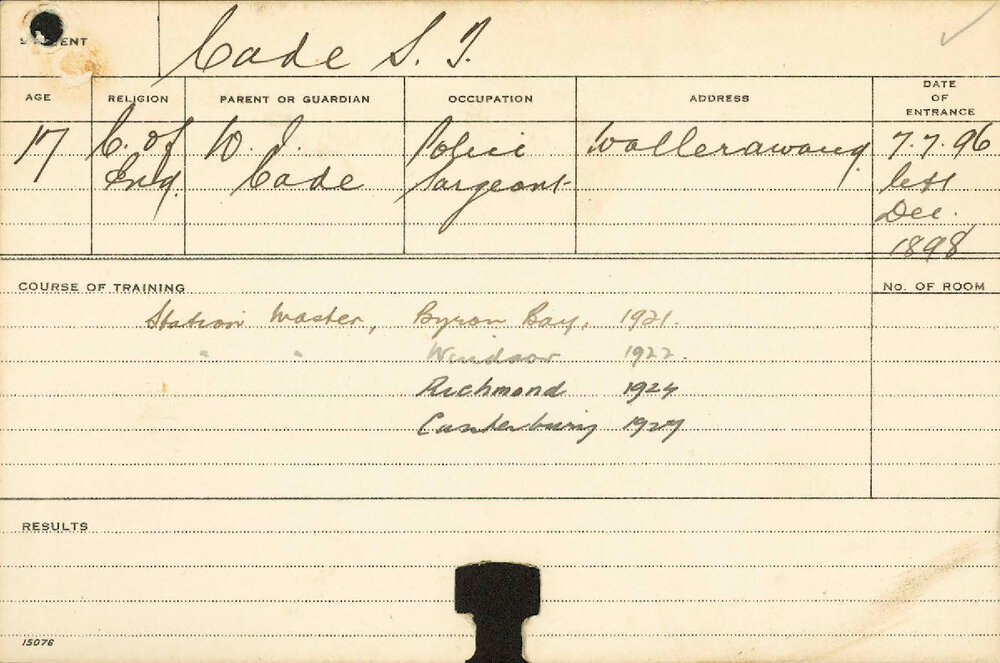 STUDENT Cade S. T.
AGE RELIGION PARENT OR GUARDIAN OCCUPATION ADDRESS DATE OF ENTRANCE
17 C. of W. J. Police Wallerawang 7.7.96
Eng. Cade Sargeant left
Dec.
1898
COURSE OF TRAINING No. OF ROOM
Station Master, Byron Bay, 1921.
" " Windsor 1922.
Richmond 1924
Canterbury 1927
RESULTS
15076